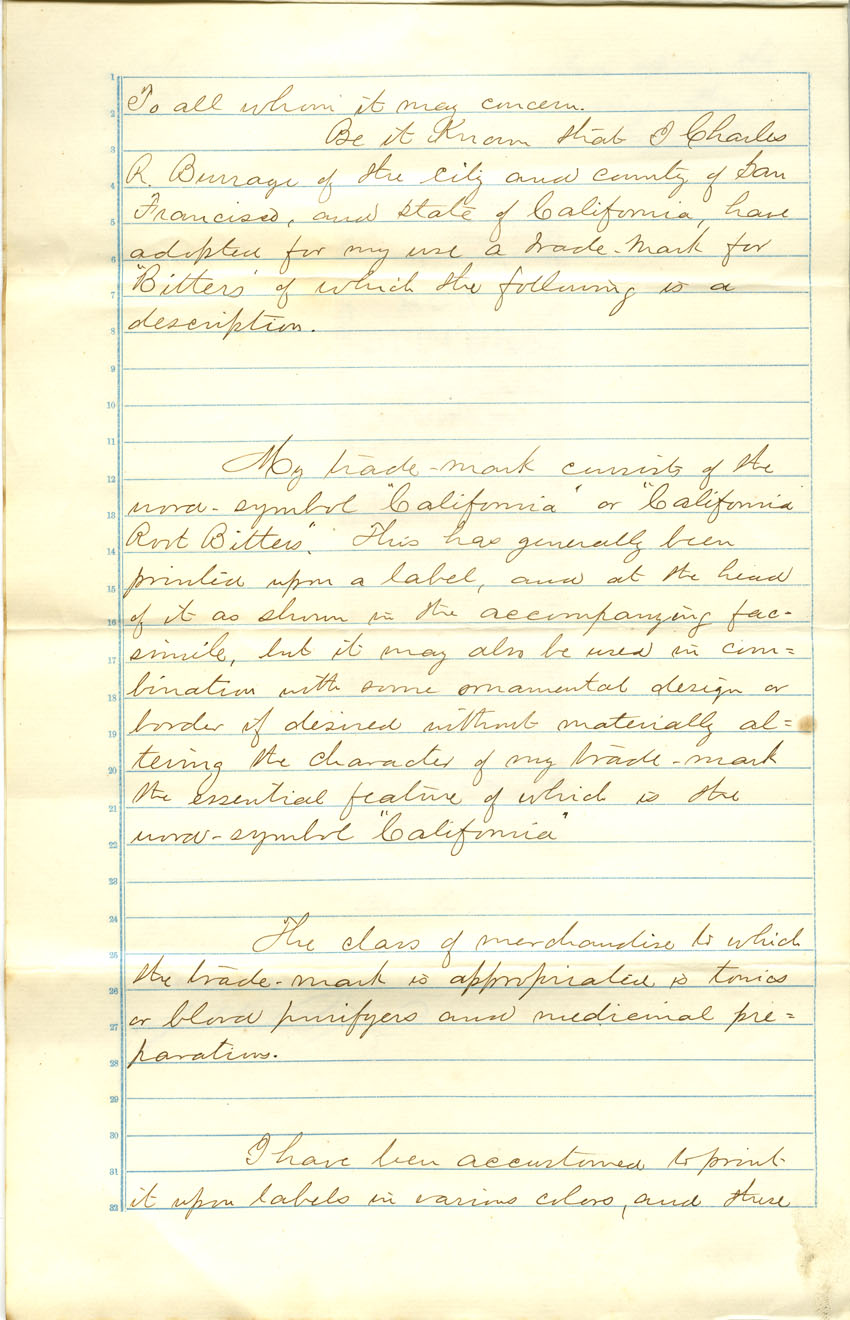 To all whom it may concern.
Be it Known that I Charles
R. Burrage of the city and county of San
Francisco, and state of California, have
adopted for my use a trade-mark for
"Bitters" of which the following is a
description.
My trade-mark consists of the
word-symbol "California" or "California
Root Bitters". This has generally been
printed upon a label, and at the head
of it as shown in the accompanying fac-
simile, but it may also be used in com=
bination with some ornamental design or
border if desired without materially al=
tering the character of my trade-mark
the essential feature of which is the
word-symbol "California"
The class of merchandise to which
the trade-mark is appropriated is tonics
or blood purifyers and medicinal pre=
parations.
I have been accustomed to print
it upon labels in various colors, and these
1
2
3
4
5
6
7
8
9
10
11
12
13
14
15
16
17
18
19
20
21
22
23
24
25
26
27
28
29
30
31
32